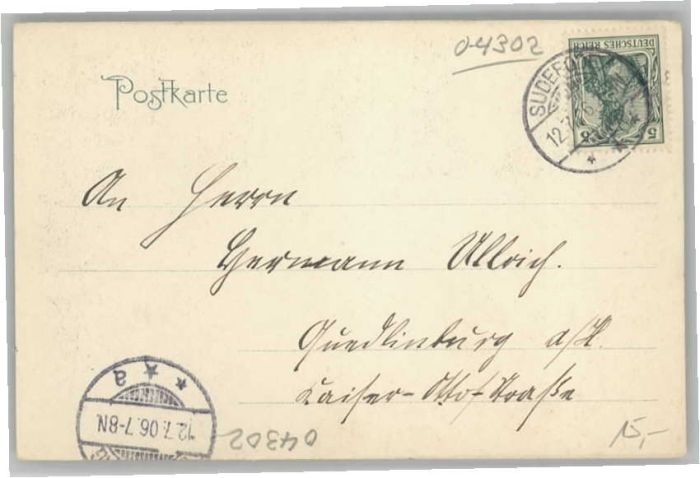 04302
DEUTSCHES REICH
5 5
Postkarte
SUDERODE
12.7.
An Herrn
Hermann Ullrich.
Quedlinburg a/H.
Kaiser-Otto-Straße
* * a
12.7.06.7-8N.
04302
15,-